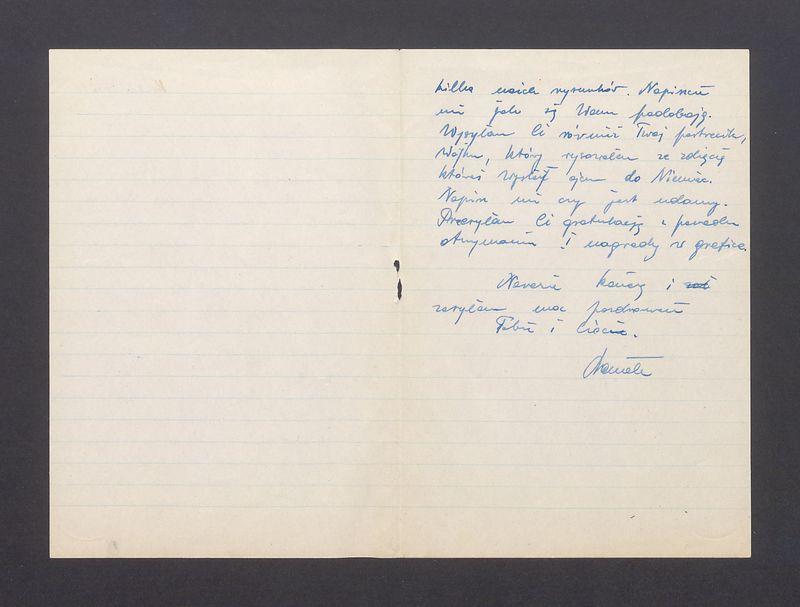 kilka moich rysunków. Napiszcie
mi jak się Wam podobają.
Wysyłam Ci również Twój portrecik,
Wujku, który rysowałam ze zdjęcia
któreś wysłał ojcu do Niemiec.
Napisz mi czy jest udany.
Przesyłam Ci gratulacje z powodu
otrzymania I nagrody w grafice.
Narazie kończę i
zasyłam moc pozdrowień
Tobie i Cioci.